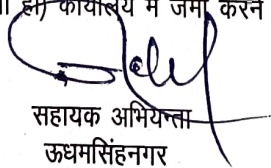 हो) कार्यालय में जमा करने
सहायक अभियन्ता
ऊधमसिंहनगर